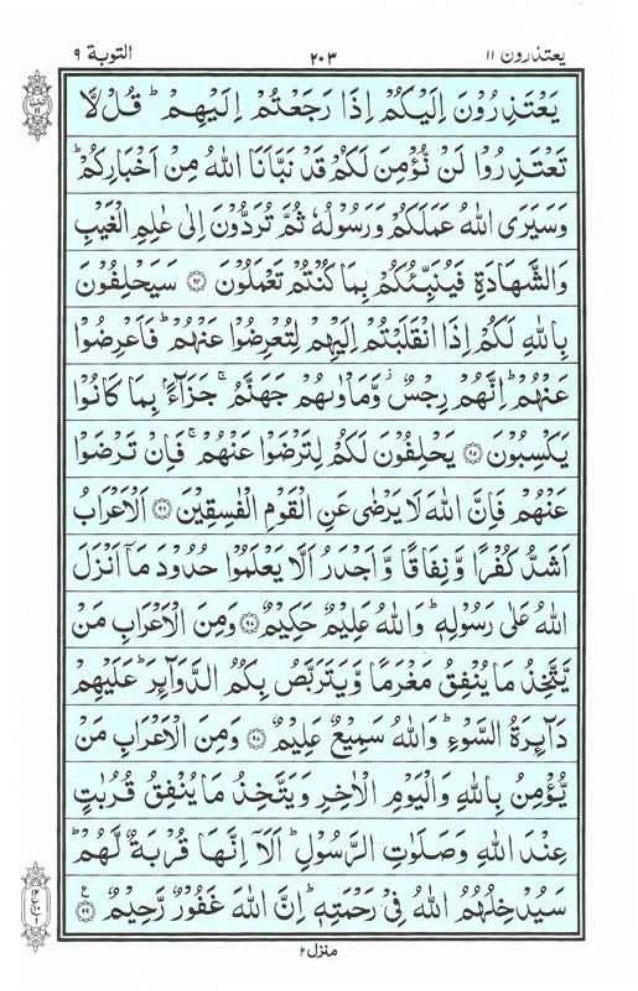 يعتذرون ١١ ٢٠٣ التوبة ٩
يَعْتَذِرُوْنَ اِلَيْكُمْ اِذَا رَجَعْتُمْ اِلَيْهِمْ ؕ قُلْ لَّا
تَعْتَذِرُوْا لَنْ نُّؤْمِنَ لَكُمْ قَدْ نَبَّاَنَا اللّٰهُ مِنْ اَخْبَارِكُمْ ؕ
وَسَيَرَى اللّٰهُ عَمَلَكُمْ وَرَسُوْلُهٗ ثُمَّ تُرَدُّوْنَ اِلٰى عٰلِمِ الْغَيْبِ
وَالشَّهَادَةِ فَيُنَبِّئُكُمْ بِمَا كُنْتُمْ تَعْمَلُوْنَ ۝٩٤ سَيَحْلِفُوْنَ
بِاللّٰهِ لَكُمْ اِذَا انْقَلَبْتُمْ اِلَيْهِمْ لِتُعْرِضُوْا عَنْهُمْ ؕ فَاَعْرِضُوْا
عَنْهُمْ ؕ اِنَّهُمْ رِجْسٌ ۫ وَّمَاْوٰىهُمْ جَهَنَّمُ ۚ جَزَآءًۢ بِمَا كَانُوْا
يَكْسِبُوْنَ ۝٩٥ يَحْلِفُوْنَ لَكُمْ لِتَرْضَوْا عَنْهُمْ ۚ فَاِنْ تَرْضَوْا
عَنْهُمْ فَاِنَّ اللّٰهَ لَا يَرْضٰى عَنِ الْقَوْمِ الْفٰسِقِيْنَ ۝٩٦ اَلْاَعْرَابُ
اَشَدُّ كُفْرًا وَّنِفَاقًا وَّاَجْدَرُ اَلَّا يَعْلَمُوْا حُدُوْدَ مَاۤ اَنْزَلَ
اللّٰهُ عَلٰى رَسُوْلِهٖ ؕ وَاللّٰهُ عَلِيْمٌ حَكِيْمٌ ۝٩٧ وَمِنَ الْاَعْرَابِ مَنْ
يَّتَّخِذُ مَا يُنْفِقُ مَغْرَمًا وَّيَتَرَبَّصُ بِكُمُ الدَّوَآئِرَ ؕ عَلَيْهِمْ
دَآئِرَةُ السَّوْءِ ؕ وَاللّٰهُ سَمِيْعٌ عَلِيْمٌ ۝٩٨ وَمِنَ الْاَعْرَابِ مَنْ
يُّؤْمِنُ بِاللّٰهِ وَالْيَوْمِ الْاٰخِرِ وَيَتَّخِذُ مَا يُنْفِقُ قُرُبٰتٍ
عِنْدَ اللّٰهِ وَصَلَوٰتِ الرَّسُوْلِ ؕ اَلَاۤ اِنَّهَا قُرْبَةٌ لَّهُمْ ؕ
سَيُدْخِلُهُمُ اللّٰهُ فِيْ رَحْمَتِهٖ ؕ اِنَّ اللّٰهَ غَفُوْرٌ رَّحِيْمٌ ۝٩٩ ع
منزل ٢